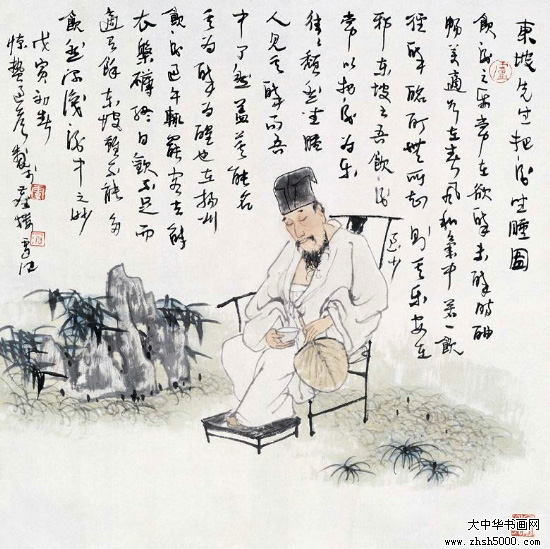 東坡先生把酒坐睡圖
飲酒之樂常在欲醉未醉時酣
暢美適如在春風和氣中若一飲
徑醉酩酊無所知則其樂安在
邪東坡之吾飲酒
過少
常以把盞為樂
往往頹然坐睡
人見其醉而吾
中了然蓋莫能名
其為醉為醒也在揚州
飲酒過午輒罷客去解
衣槃礴終日歡不足而
適有餘東坡雖不能多
飲然深識酒中之妙
戊寅初春
大中华书画网
www.zhsh5000.com